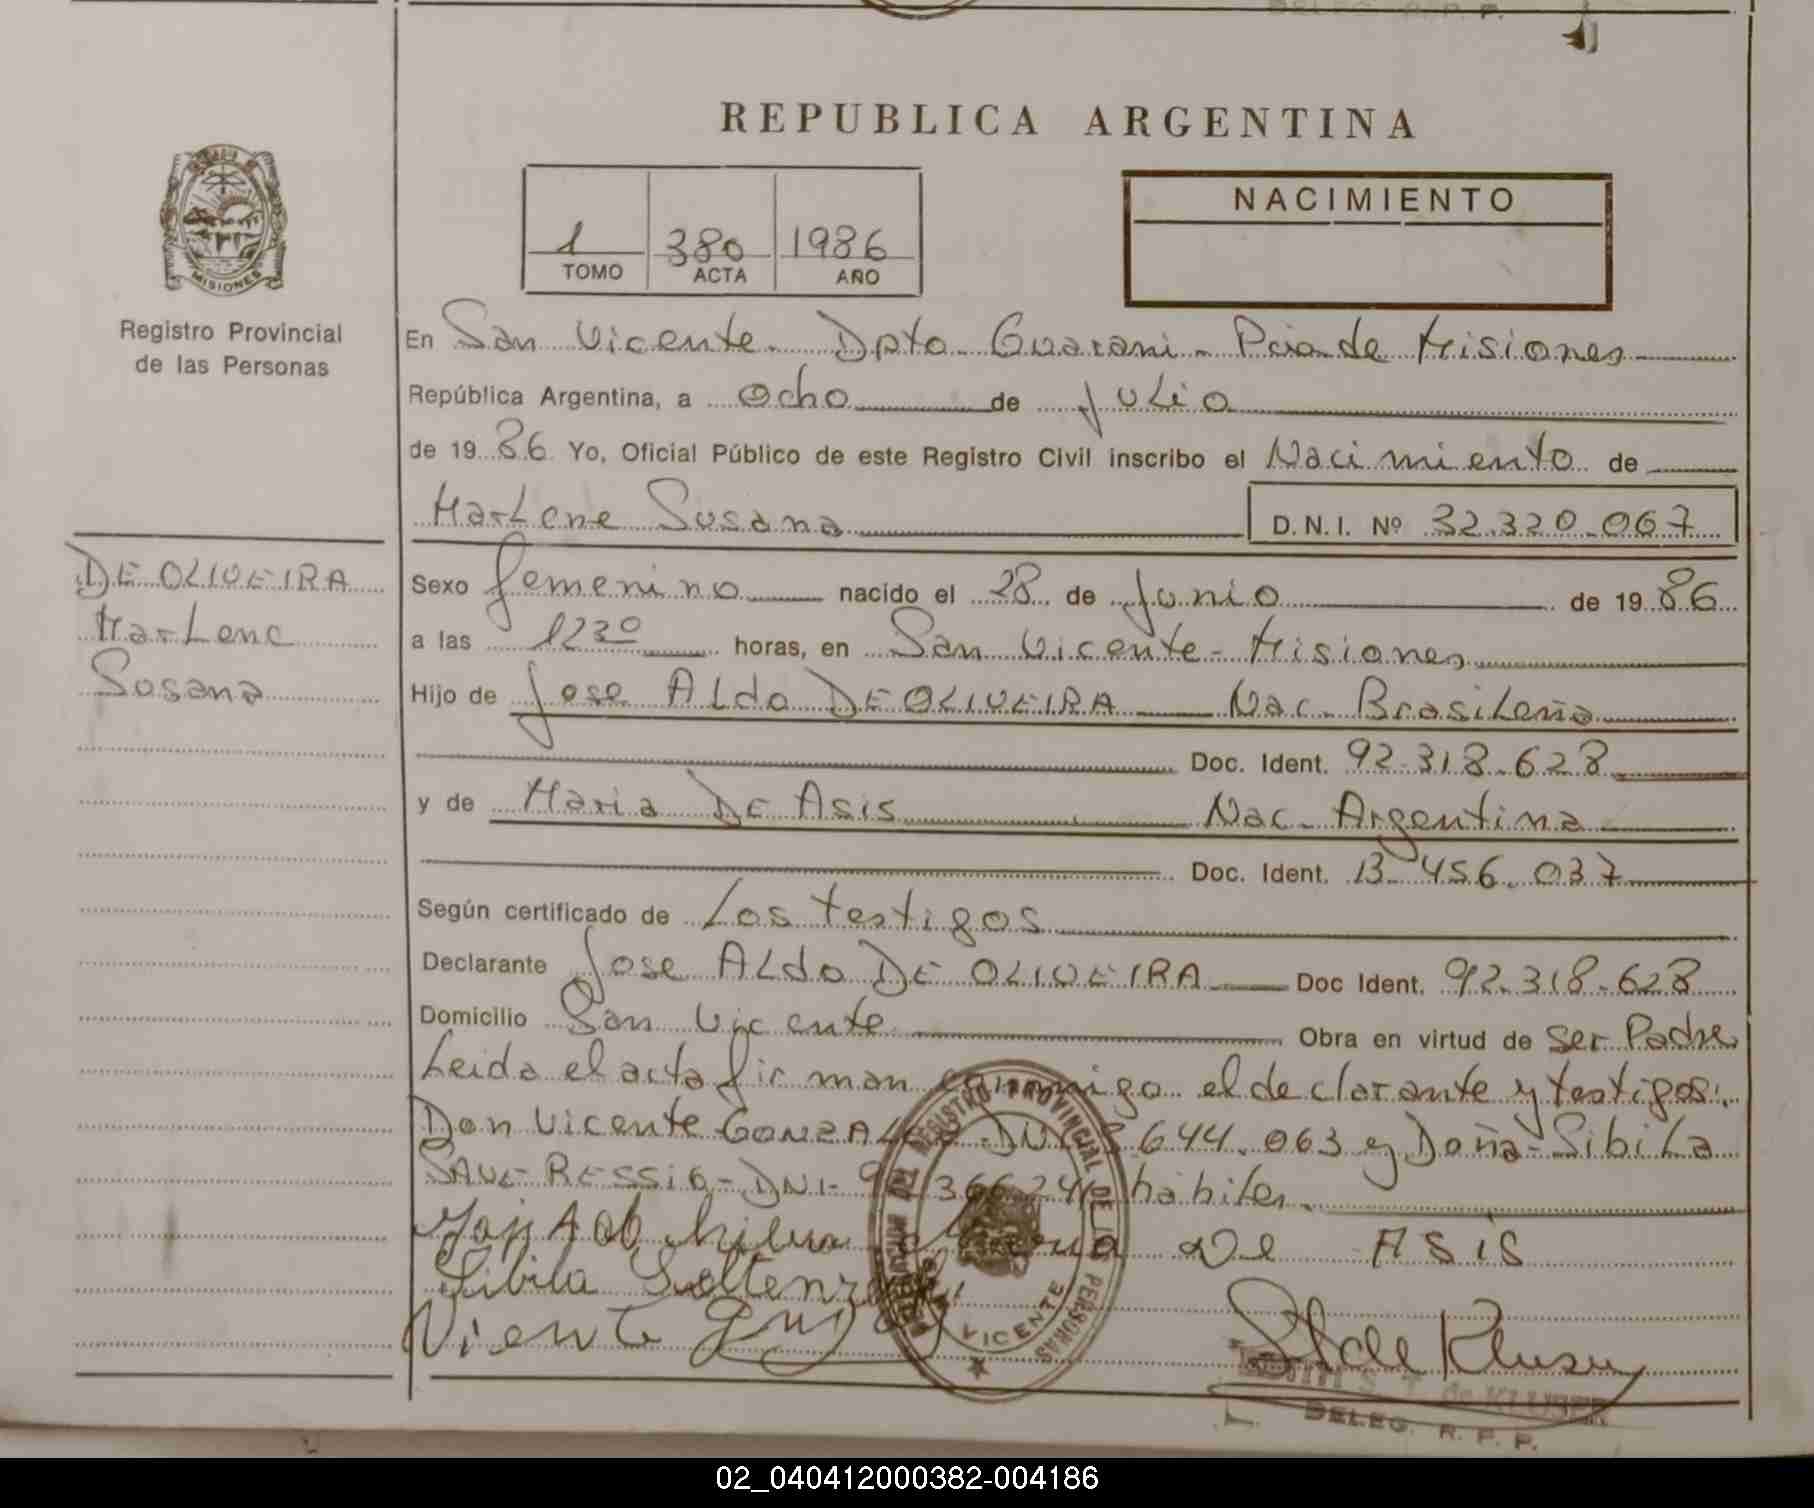 DELEG. R. P. P.
REPUBLICA ARGENTINA
1 380 1986
TOMO ACTA AÑO
NACIMIENTO
MISIONES
Registro Provincial
de las Personas
En San Vicente Dpto Guarani - Pcia de Misiones
República Argentina, a Ocho de Julio
de 1986 Yo, Oficial Público de este Registro Civil inscribo el Nacimiento de
Marlene Susana D.N.I. Nº 32.320.067
DE OLIVEIRA
Marlene
Susana
Sexo femenino nacido el 28 de Junio de 1986
a las 1230 horas, en San Vicente - Misiones
Hijo de Jose Aldo DE OLIVEIRA Nac. Brasileña
Doc. Ident. 92.318.628
y de Maria DE Asis Nac. Argentina
Doc. Ident. 13.456.037
Según certificado de Los testigos
Declarante Jose Aldo DE OLIVEIRA Doc Ident. 92.318.628
Domicilio San Vicente Obra en virtud de ser Padre
Leida el acta firman conmigo el declarante y testigos:
Don Vicente GONZALEZ DNI 644.063 y Doña Sibila
DNI- habiles.
De ASis
Sibila
REGISTRO PROVINCIAL DE LAS PERSONAS
VICENTE
S. T. de KLUSEN
DELEG. R. P. P.
02_040412000382-004186